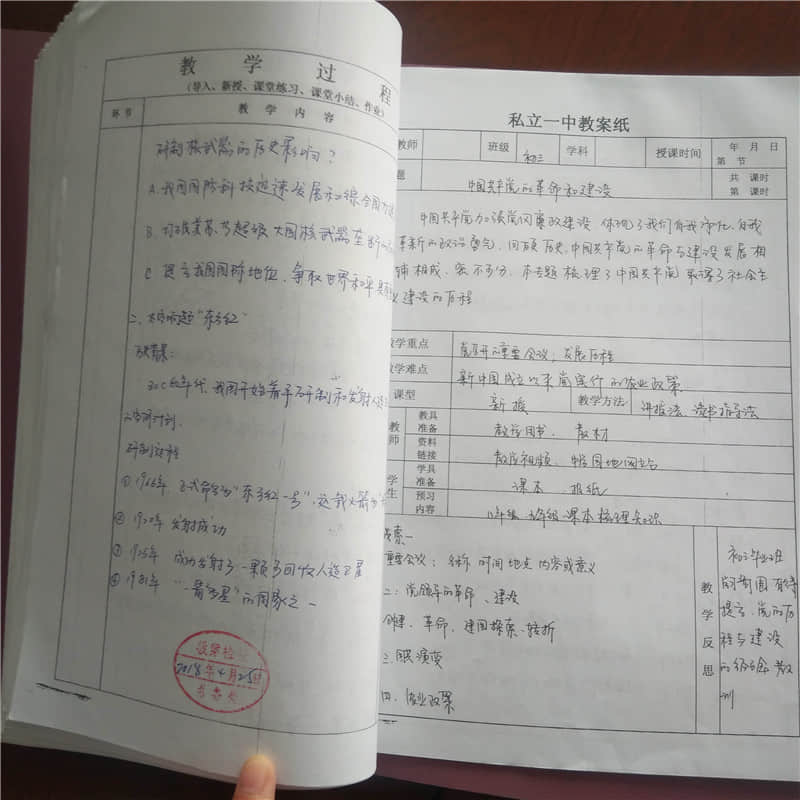 教 学 过 程
(导入、新授、课堂练习、课堂小结、作业)
环节
教 学 内 容
研制核武器的历史影响?
A. 我国国防科技迅速发展和综合国力
B. 打破美苏等超级大国核武器垄断
C 提高我国国际地位,争取世界和平
二、太空响起"东方红"
历史背景:
20C 60年代,我国开始着手研制和发射人造
卫星计划.
研制过程
"东方红一号"
② 1970年 发射成功
③ 1975年 成功发射了一颗可回收人造卫星
④ 1981年 "一箭多星"的国家之一
教案检
2018年4月25日
私立一中教案纸
教师
班级
初三
学科
授课时间
年 月 日
第 节
题
中国共产党的革命和建设
共 课时
第 课时
中国共产党加强党风廉政建设 体现了我们自我净化、自我
革新的政治勇气,回顾历史,中国共产党的革命与建设发展相
辅相成,密不可分.本专题梳理了中国共产党 社会主
义建设的历程
教学重点
重要会议;发展历程
教学难点
新中国成立以来 实行的农业政策
课型
新授
教学方法
讲授法、读书指导法
教师
教具准备
教学用书、教材
资料链接
教学视频、 网站
学生
学具准备
课本 报纸
预习内容
课本梳理知识
探索一
重要会议:名称 时间 地点 内容或意义
二:党领导的革命、建设
创建、革命、建国探索、转折
三. 演变
四. 农业政策
教学反思
初三毕业班
提高、党的历
程与建设
的经验教
训